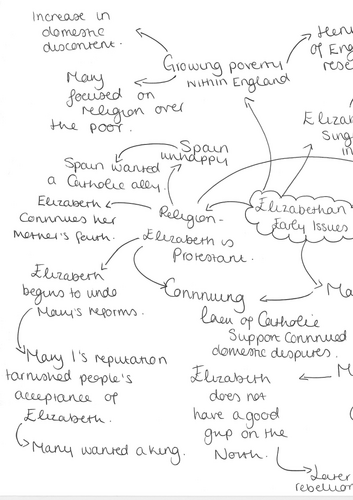 Increase in
domestic
discontent.
Growing poverty
within England
Many
focused on
religion over
the poor.
of Eng
Spain
unhappy
Spain wanted
a Catholic ally.
Elizabeth
Continues her
Mother's faith.
Religion -
Elizabeth is
Protestant.
Elizabethan
Early Issues
Elizabeth
begins to undo
Mary's reforms.
Continuing
lack of Catholic
Support Continued
domestic disputes.
Ma
Mary I's reputation
tarnished people's
acceptance of
Elizabeth.
Many wanted a king.
Elizabeth
does not
have a good
grip on the
North.
M
Later
rebellion